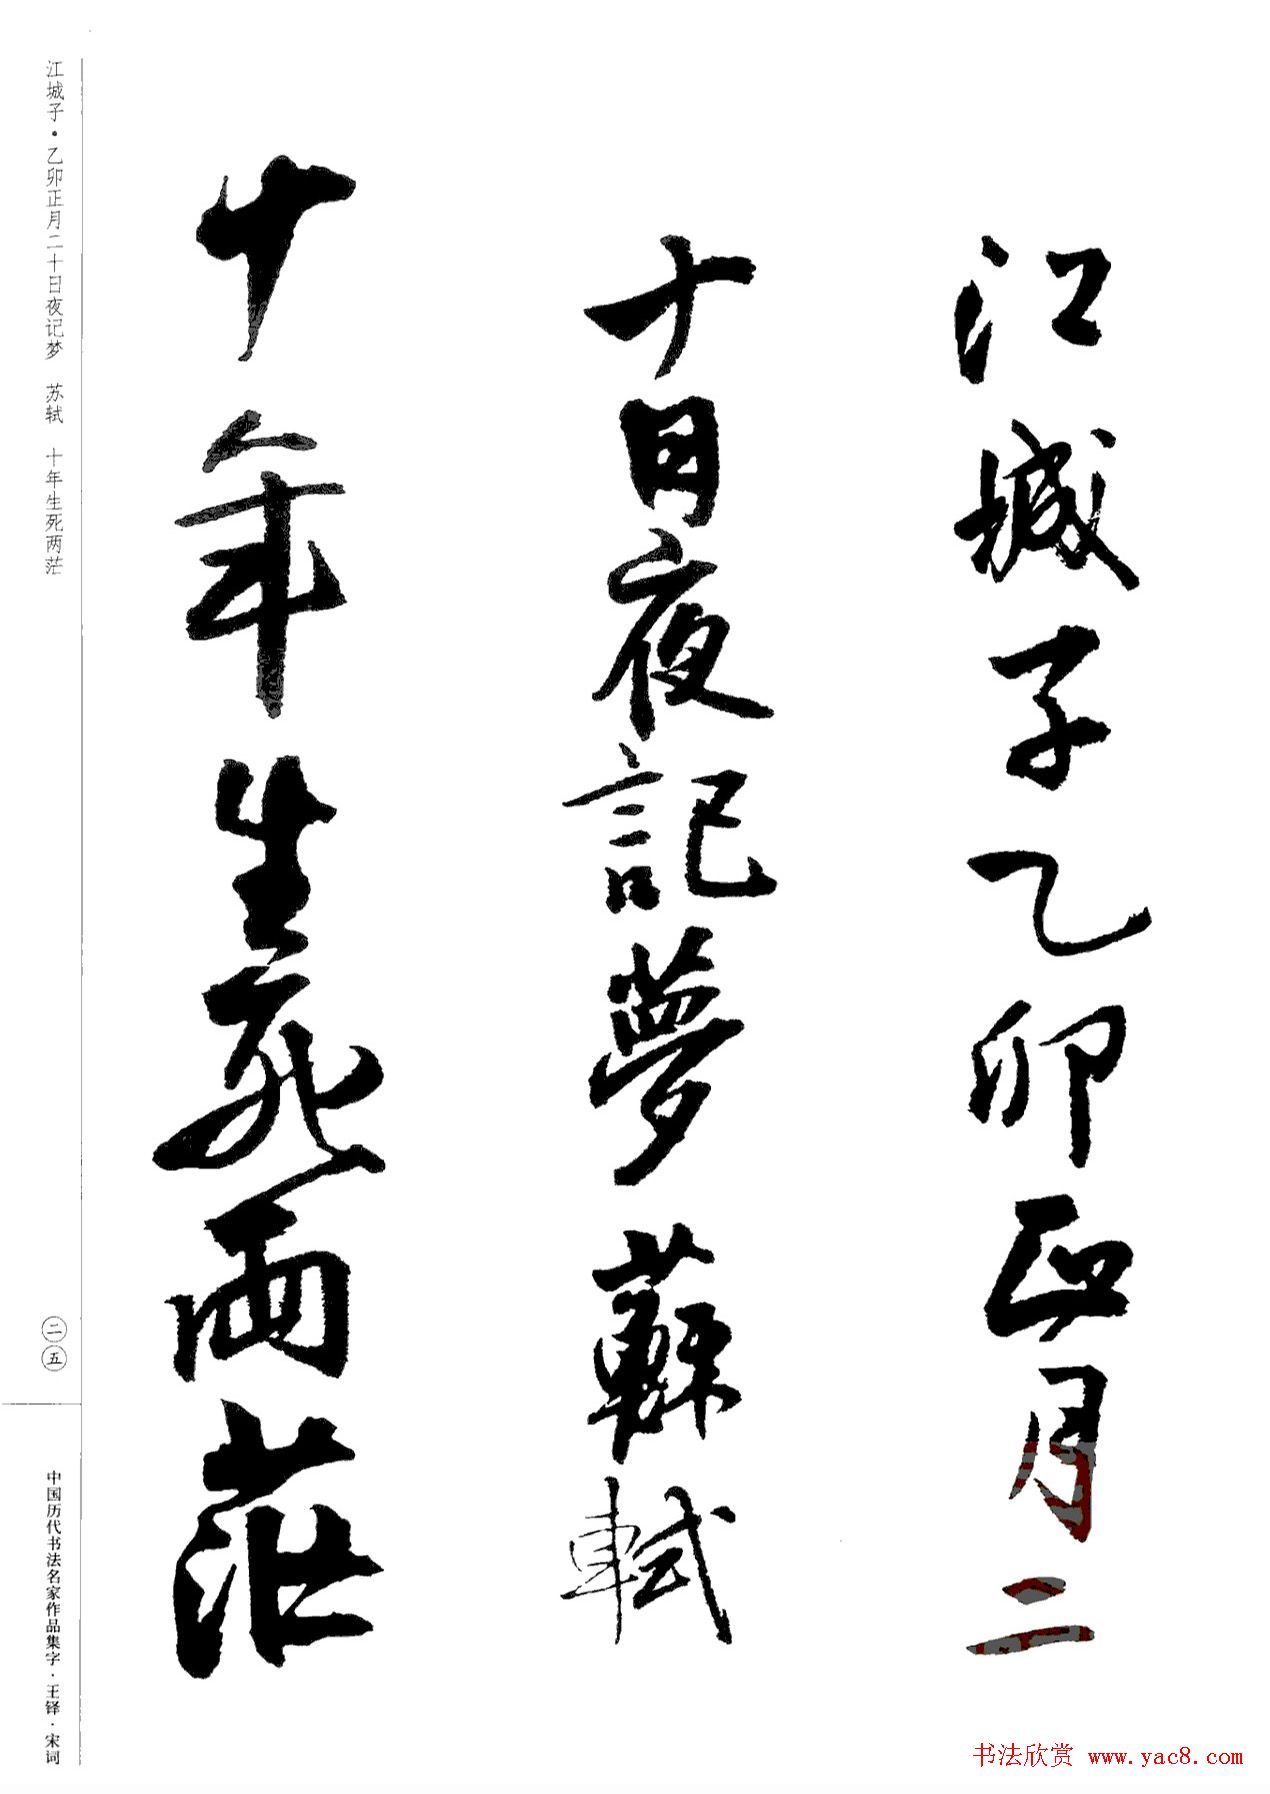 江城子乙卯正月二
十日夜記夢 蘇軾
十年生死兩茫
江城子·乙卯正月二十日夜记梦 苏轼 十年生死两茫
二五
中国历代书法名家作品集字·王铎·宋词
书法欣赏 www.yac8.com